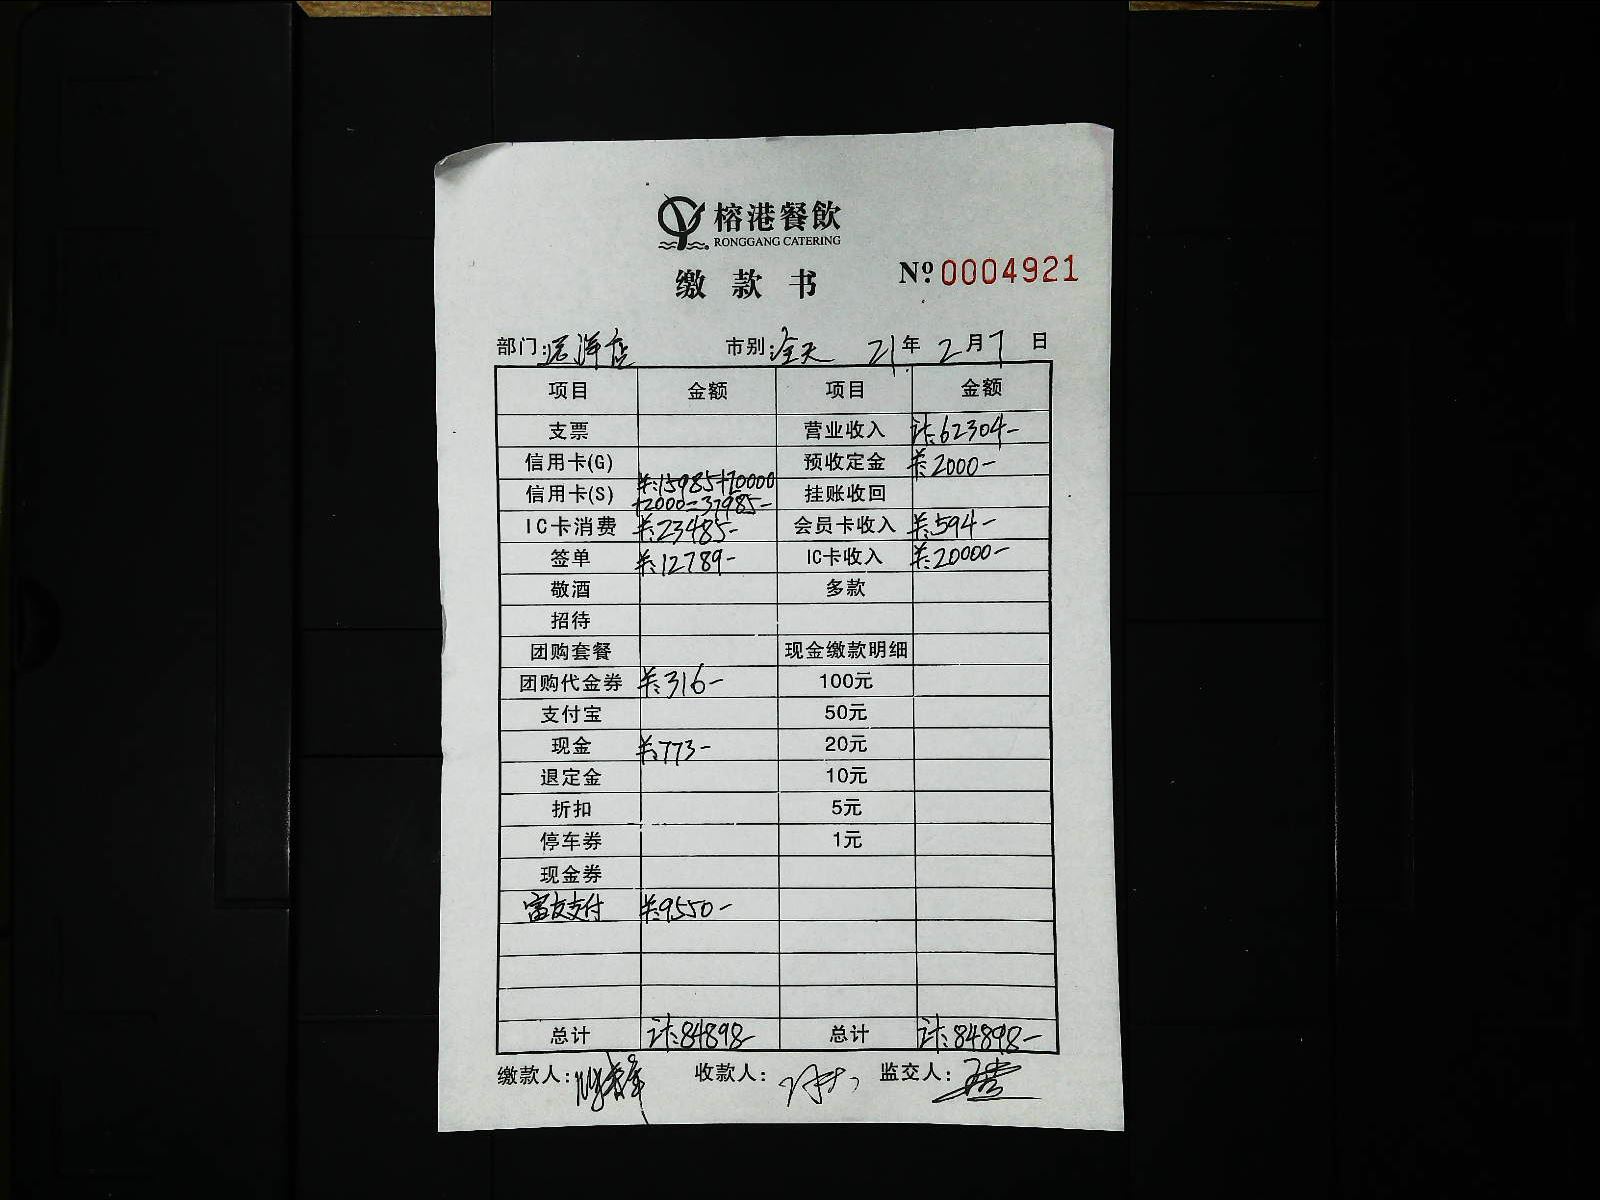 榕港餐飲
RONGGANG CATERING
缴款书 Nº.0004921
部门:远洋店 市别:全天 21年2月7日
项目 金额 项目 金额
支票 营业收入 计:62304-
信用卡(G) 预收定金 ¥:2000-
信用卡(S) ¥:15985+20000 挂账收回
+2000=37985-
IC卡消费 ¥:23485- 会员卡收入 ¥:594-
签单 ¥:12789- IC卡收入 ¥:20000-
敬酒 多款
招待
团购套餐 现金缴款明细
团购代金券 ¥:316- 100元
支付宝 50元
现金 ¥:773- 20元
退定金 10元
折扣 5元
停车券 1元
现金券
富友支付 ¥:9550-
总计 计:84898- 总计 计:84898-
缴款人: 收款人: 监交人: